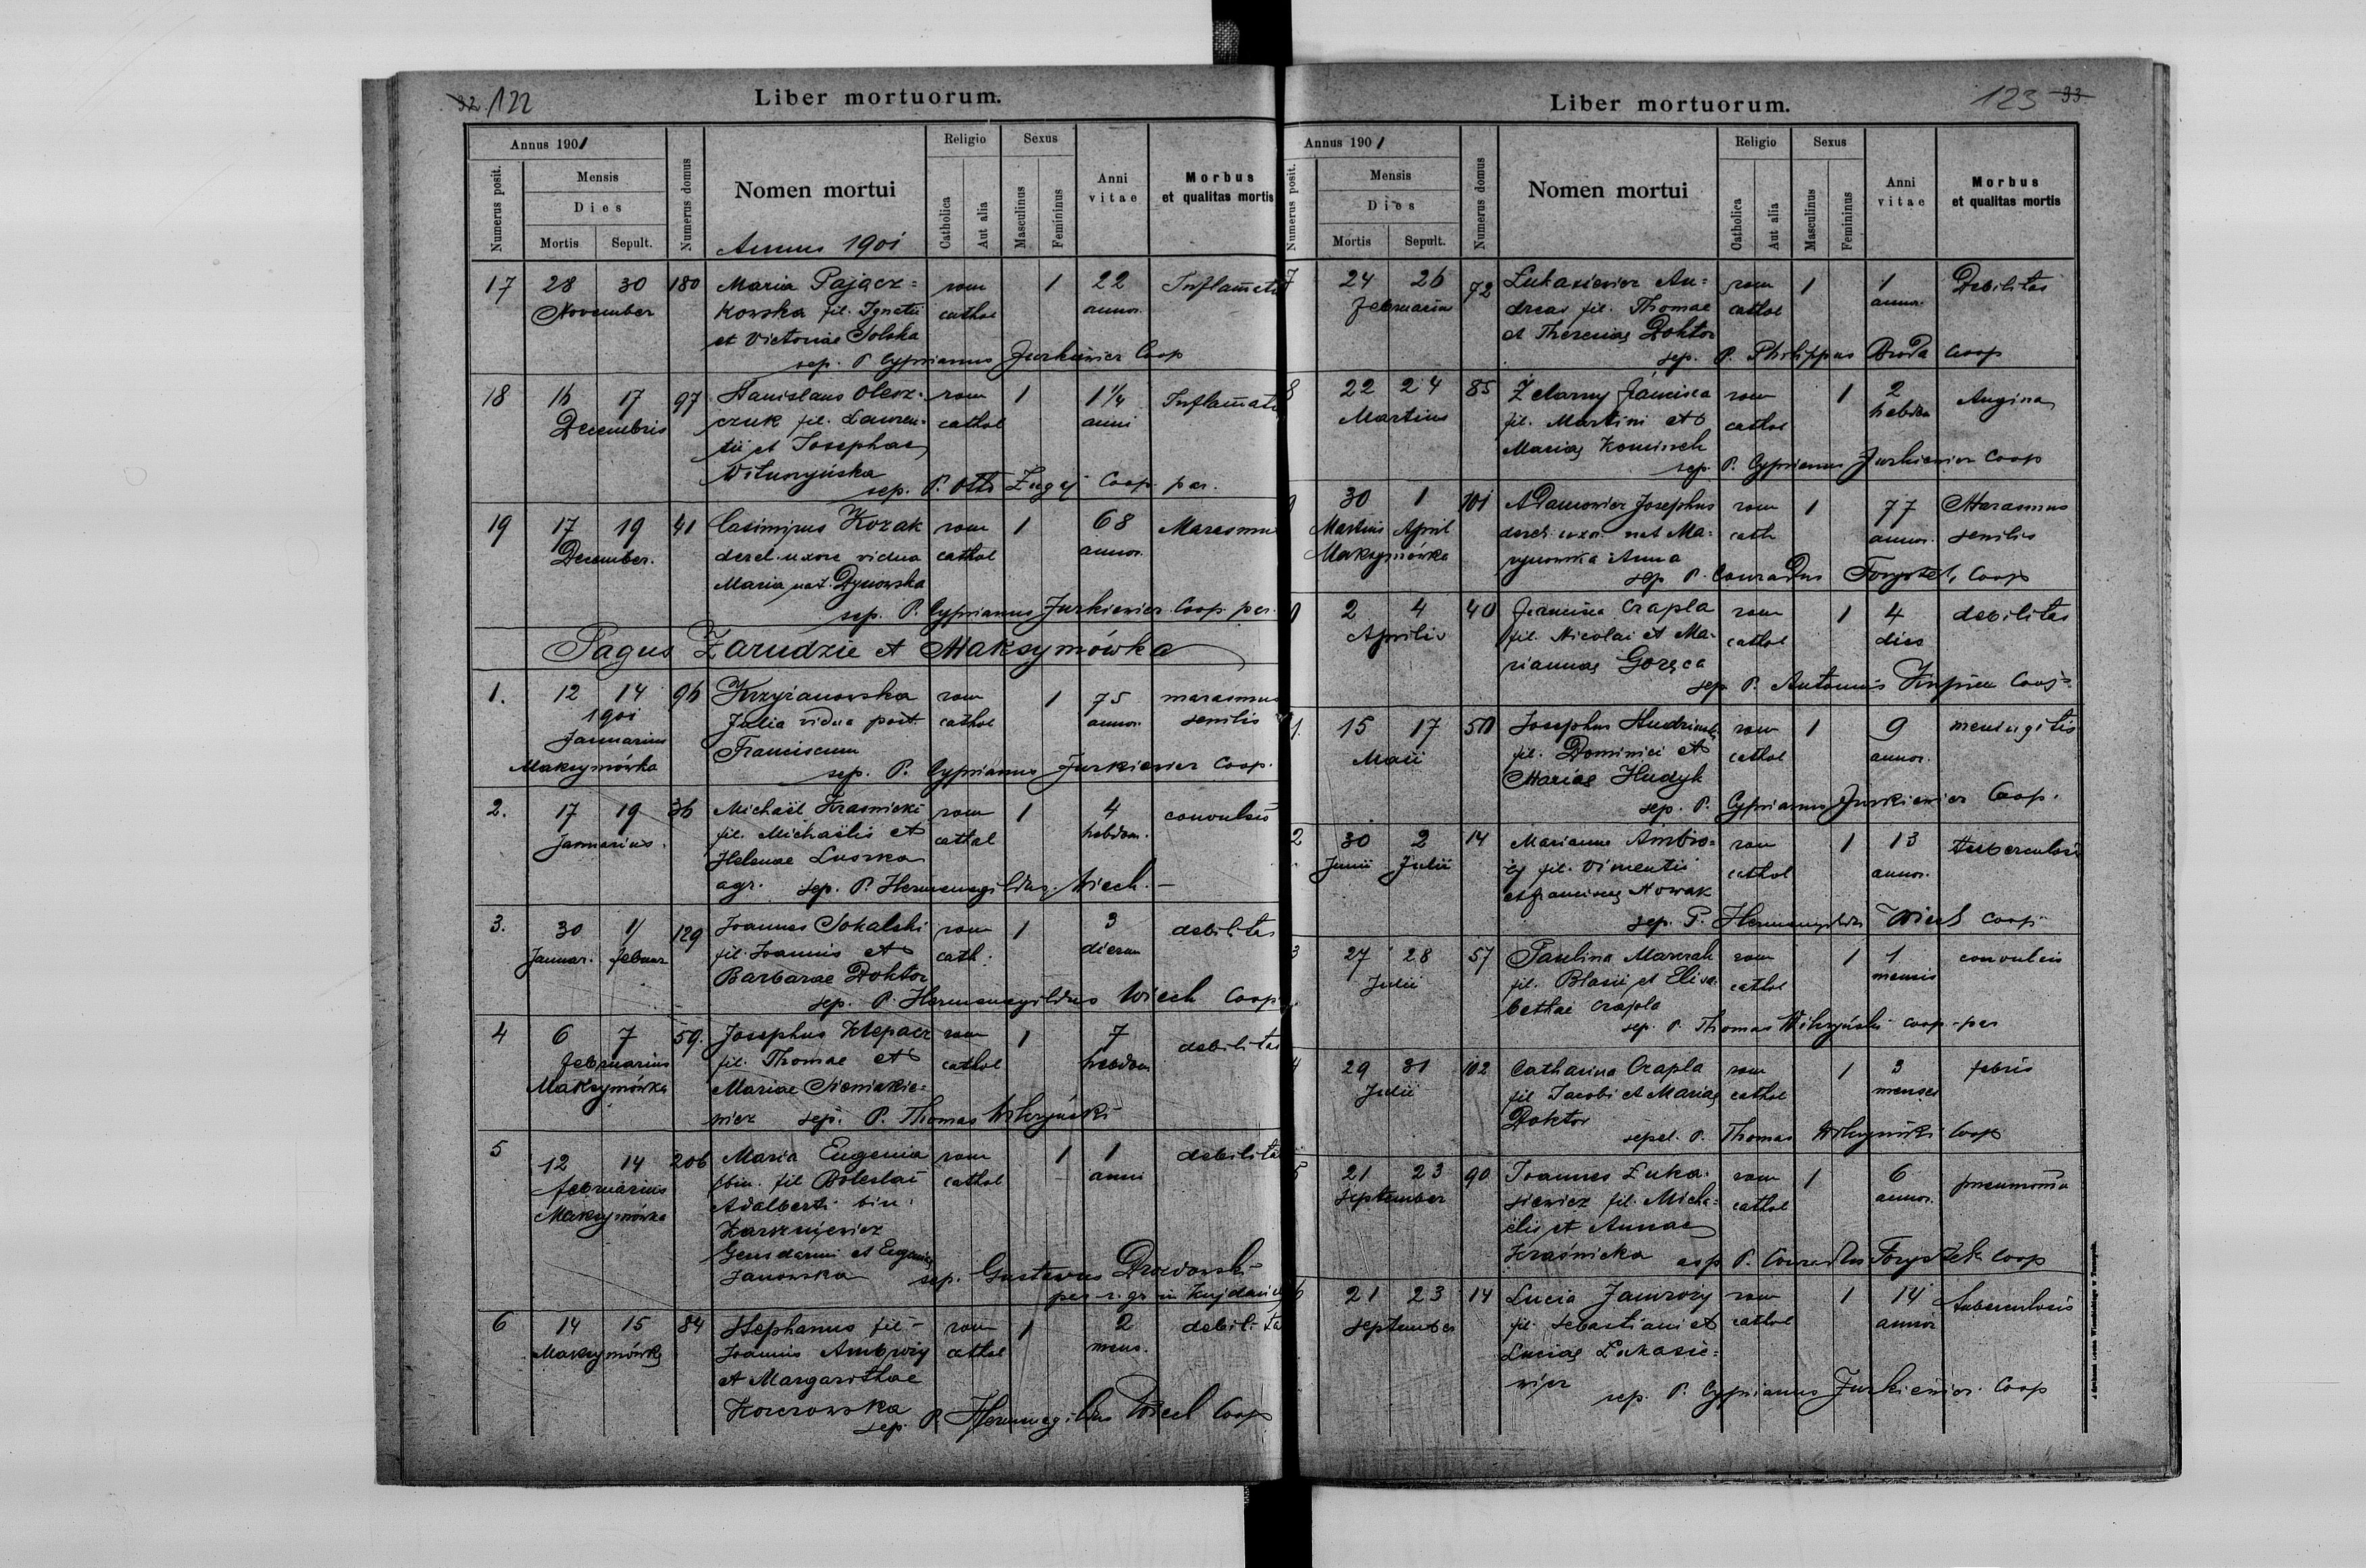 32. 122
Liber mortuorum.
Annus 1901
Numerus posit.
Mensis
Dies
Mortis
Sepult.
Numerus domus
Nomen mortui
Annus 1901
Religio
Catholica
Aut alia
Sexus
Masculinus
Femininus
Anni vitae
Morbus et qualitas mortis
17 28 30 180 Maria Pającz= rom 1 22
November kowska fil. Ignatii cathol annor.
et Victoriae Solska
sep. P. Cyprianus Jurkiewicz Coop
18 16 17 97 Stanislaus rom 1 1 1/4
Decembris czuk fil. Lauren- cathol anni
tii et Josephae
sep. P. Otto Coop. par.
19 17 19 41 Casimirus Kozak rom 1 68
December. derel. uxore vidua cathol annor.
Maria nat. Dynowska
sep. P. Cyprianus Jurkiewicz Coop. par.
Pagus Zarudzie et Maksymówka
1. 12 14 96 Krzyżanowska rom 1 75 marasmus
1901 Julia vidua post cathol annor. senilis
Januarius Franciscum
Maksymówka sep. P. Cyprianus Jurkiewicz Coop.
2. 17 19 36 Michaël Krasnicki rom 1 4
Januarius. fil. Michaëlis et cathol hebdom.
Helenae Luszka
agr. sep. P. Hermenegildus Wiech.
3. 30 1/ 129 Joannes Sokalski rom 1 3 debilitas
Januar. februar fil. Joannis et cath. dierum
Barbarae Doktor
sep. P. Hermenegildus Wiech Coop
4 6 7 59. Josephus Klepacz rom 1 7 debilitas
februarius fil. Thomae et cathol hebdom
Maksymówka Mariae
wicz sep. P. Thomas
5 12 14 206 Maria Eugenia rom 1 1
februarius fil Boleslai cathol anni
Maksymówka Adalberti bin.
Gensdarmi et Eugeniae
Janowska sep. Gustavus
6 14 15 84 Stephanus fil- rom 1 2
Maksymówka Joannis Ambroży cathol mens.
et Margarithae
Korczowska
sep. P. Hermenegildus Wiech Coop
Liber mortuorum.
123 33.
Annus 1901
Numerus posit.
Mensis
Dies
Mortis
Sepult.
Numerus domus
Nomen mortui
Religio
Catholica
Aut alia
Sexus
Masculinus
Femininus
Anni vitae
Morbus et qualitas mortis
7 24 26 72 Lukasiewicz An- rom 1 1 Debilitas
dreas fil. Thomae cathol
et Theresiae Doktor
sep. P. Philippus Broda Coop
8 22 24 85 rom 1 2 Angina
Martius fil. Martini et cathol
Mariae
sep. P. Cyprianus Jurkiewicz Coop
30 1 101 Adamowicz Josephus rom 1 77 Marasmus
Martius April derel. uxor. nat Ma- cath annor. senilis
Maksymówka Anna
sep P. Conradus Forystek, Coop
2 4 40 Francisca Czapla rom 1 4 debilitas
Aprilis fil. Nicolai et Ma- cathol dies
riannae Goręca
sep P. Antonius Coop
15 17 50 Josephus rom 1 9 meningitis
Maii fil. Dominici et cathol annor.
Mariae Hudyk
sep. P. Cyprianus Jurkiewicz Coop.
2 30 2 14 Marianna Ambro- rom 1 13
Junii Julii ży fil. Vincentii cathol annor.
et Franciscae Nowak
sep. P. Hermenegildus Wiech Coop
3 27 28 57 Paulina rom 1 1
Julii fil. Blasii et Elisa- cathol mensis
bethae Czapla
sep. P. Thomas coop. par
4 29 31 102 Catharina Czapla rom 1 3 febris
Julii fil Jacobi et Mariae cathol menses
Doktor
sepel. P. Thomas Coop
5 21 23 90 Joannes Luka- rom 1 6 pneumonia
September siewicz fil. Micha- cathol annor.
ëlis et Annae
Kraśnicka P. Conradus Forystek Coop
6 21 23 14 Lucia rom 1 14 tuberculosis
September fil. Sebastiani et cathol annor
Luciae Lukasie-
wicz sep. P. Cyprianus Jurkiewicz. Coop